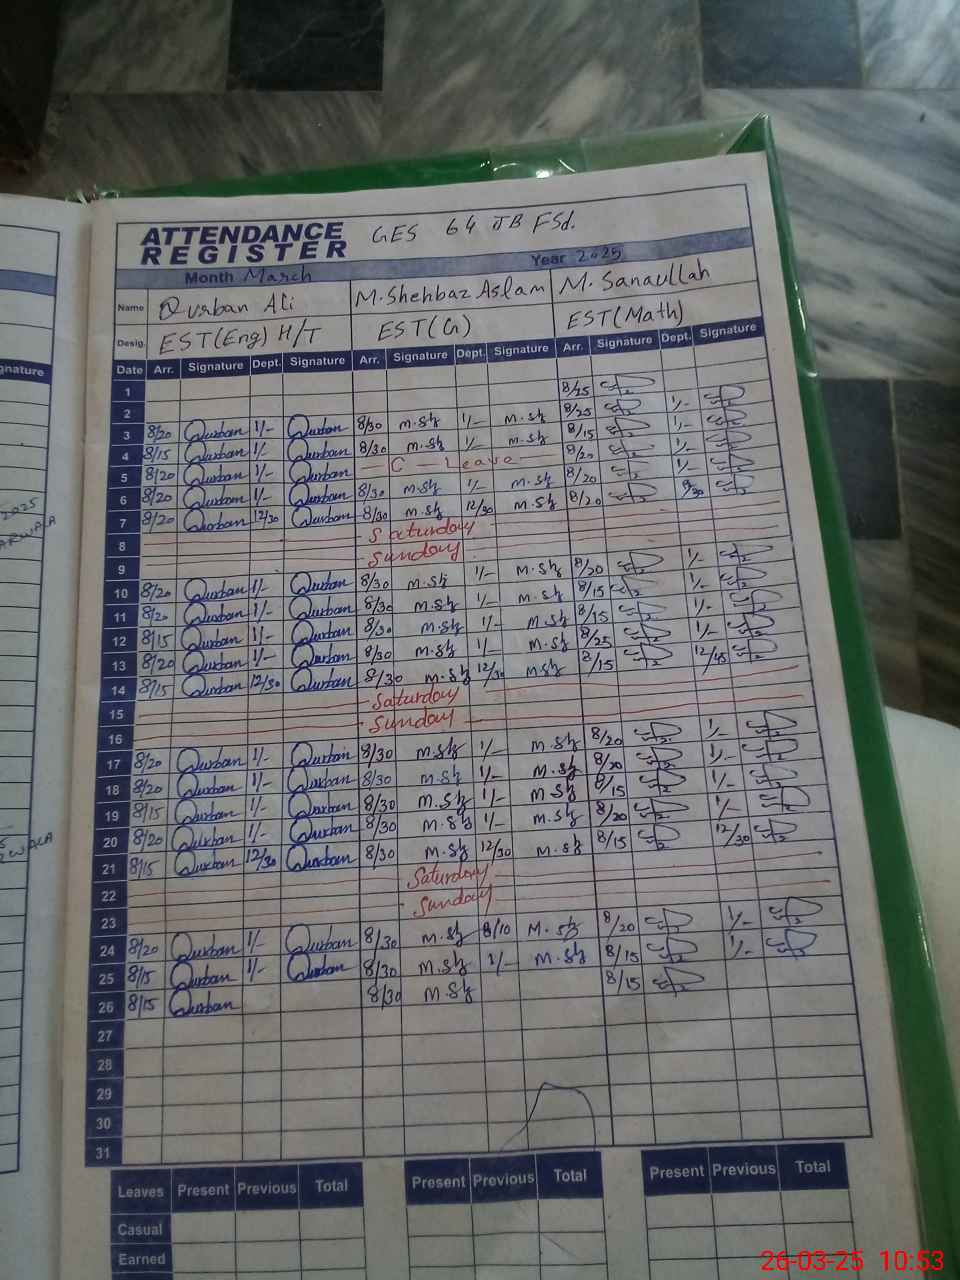 ATTENDANCE REGISTER GES 64 JB FSd.
Month March Year 2025
Name Qurban Ali M. Shehbaz Aslam M. Sanaullah
Desig. EST(Eng) H/T EST(G) EST(Math)
Date Arr. Signature Dept. Signature Arr. Signature Dept. Signature Arr. Signature Dept. Signature
1
2 8/25
3 8/20 Qurban 1/- Qurban 8/30 M.Sh 1/- M.Sh 8/25 1/-
4 8/15 Qurban 1/- Qurban 8/30 M.Sh 1/- M.Sh 8/15 1/-
5 8/20 Qurban 1/- Qurban C - Leave 8/20 1/-
6 8/20 Qurban 1/- Qurban 8/30 M.Sh 1/- M.Sh 8/20 1/-
7 8/20 Qurban 12/30 Qurban 8/30 M.Sh 12/30 M.Sh 8/20
8 Saturday
9 Sunday
10 8/20 Qurban 1/- Qurban 8/30 M.Sh 1/- M.Sh 8/20 1/-
11 8/20 Qurban 1/- Qurban 8/30 M.Sh 1/- M.Sh 8/15 1/-
12 8/15 Qurban 1/- Qurban 8/30 M.Sh 1/- M.Sh 8/15 1/-
13 8/20 Qurban 1/- Qurban 8/30 M.Sh 1/- M.Sh 8/25 1/-
14 8/15 Qurban 12/30 Qurban 8/30 M.Sh 12/30 M.Sh 8/15 12/45
15 Saturday
16 Sunday
17 8/20 Qurban 1/- Qurban 8/30 M.Sh 1/- M.Sh 8/20 1/-
18 8/20 Qurban 1/- Qurban 8/30 M.Sh 1/- M.Sh 8/20 1/-
19 8/15 Qurban 1/- Qurban 8/30 M.Sh 1/- M.Sh 8/15 1/-
20 8/20 Qurban 1/- Qurban 8/30 M.Sh 1/- M.Sh 8/20 1/-
21 8/15 Qurban 12/30 Qurban 8/30 M.Sh 12/30 M.Sh 8/15 12/30
22 Saturday
23 Sunday
24 8/20 Qurban 1/- Qurban 8/30 M.Sh 8/10 M.Sh 8/20 1/-
25 8/15 Qurban 1/- Qurban 8/30 M.Sh 1/- M.Sh 8/15 1/-
26 8/15 Qurban 8/30 M.Sh 8/15
27
28
29
30
31
Leaves Present Previous Total Present Previous Total Present Previous Total
Casual
Earned
26-03-25 10:53